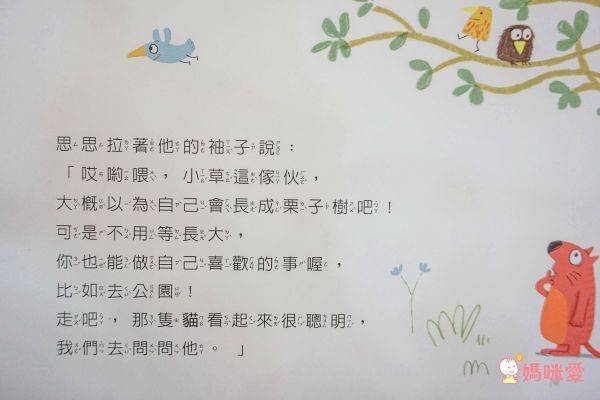 思思拉著他的袖子說：
「哎喲喂，小草這傢伙，
大概以為自己會長成栗子樹吧！
可是不用等長大，
你也能做自己喜歡的事喔，
比如去公園！
走吧，那隻貓看起來很聰明，
我們去問問他。」
媽咪愛